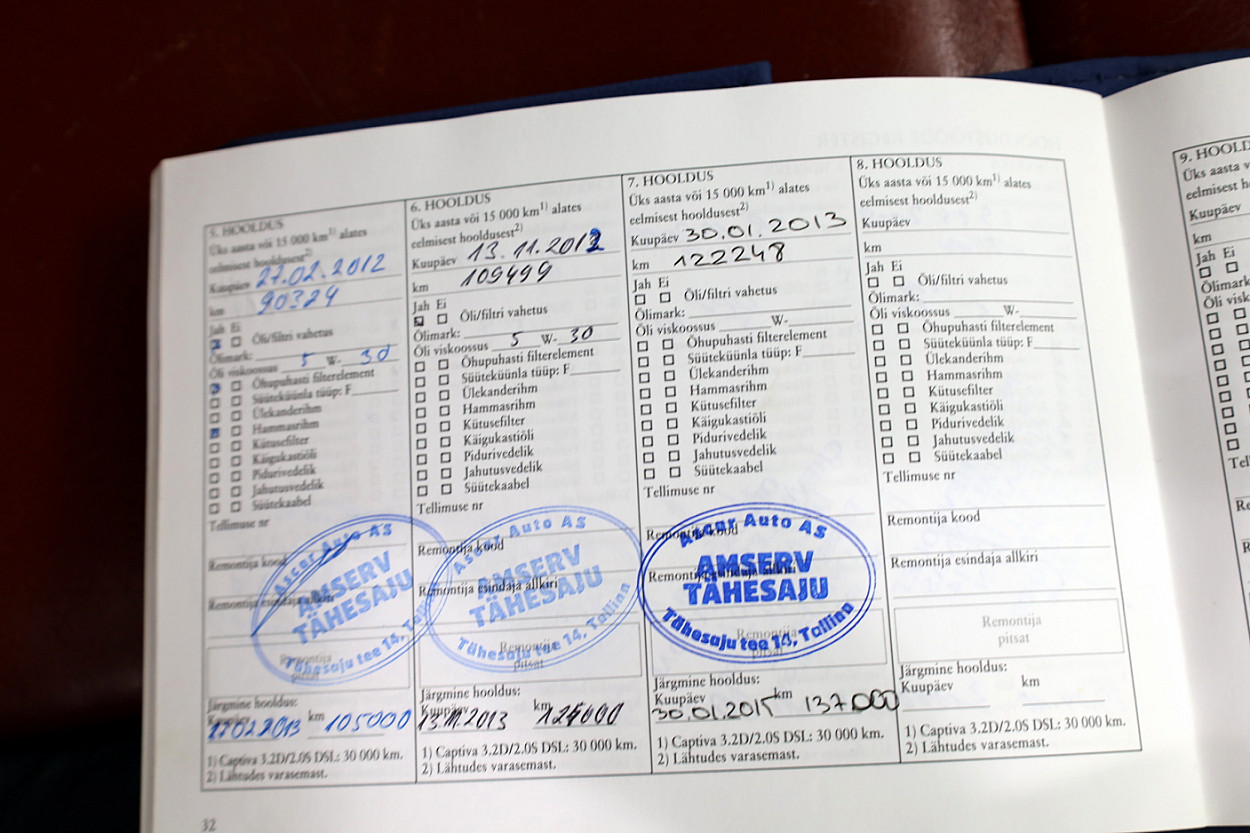 5. HOOLDUS
Üks aasta või 15 000 km1) alates
eelmisest hooldusest2)
Kuupäev 27.02.2012
km 90324
Jah Ei
Õli/filtri vahetus
Õlimark:
Õli viskoossus 5 W- 30
Õhupuhasti filterelement
Süüteküünla tüüp: F
Ülekanderihm
Hammasrihm
Kütusefilter
Käigukastiõli
Pidurivedelik
Jahutusvedelik
Süütekaabel
Tellimuse nr
Remontija kood
Remontija esindaja allkiri
Ascar Auto AS
AMSERV
TÄHESAJU
Tähesaju tee 14, Tallinn
Remontija
pitsat
Järgmine hooldus:
Kuupäev km
27022013 105000
1) Captiva 3.2D/2.0S DSL: 30 000 km.
2) Lähtudes varasemast.
32
6. HOOLDUS
Üks aasta või 15 000 km1) alates
eelmisest hooldusest2)
Kuupäev 13.11.2012
km 109499
Jah Ei
Õli/filtri vahetus
Õlimark:
Õli viskoossus 5 W- 30
Õhupuhasti filterelement
Süüteküünla tüüp: F
Ülekanderihm
Hammasrihm
Kütusefilter
Käigukastiõli
Pidurivedelik
Jahutusvedelik
Süütekaabel
Tellimuse nr
Remontija kood
Remontija esindaja allkiri
Ascar Auto AS
AMSERV
TÄHESAJU
Tähesaju tee 14, Tallinn
Remontija
pitsat
Järgmine hooldus:
Kuupäev km
13.11.2013
1) Captiva 3.2D/2.0S DSL: 30 000 km.
2) Lähtudes varasemast.
7. HOOLDUS
Üks aasta või 15 000 km1) alates
eelmisest hooldusest2)
Kuupäev 30.01.2013
km 122248
Jah Ei
Õli/filtri vahetus
Õlimark:
Õli viskoossus W-
Õhupuhasti filterelement
Süüteküünla tüüp: F
Ülekanderihm
Hammasrihm
Kütusefilter
Käigukastiõli
Pidurivedelik
Jahutusvedelik
Süütekaabel
Tellimuse nr
Remontija kood
Remontija esindaja allkiri
Ascar Auto AS
AMSERV
TÄHESAJU
Tähesaju tee 14, Tallinn
Remontija
pitsat
Järgmine hooldus:
Kuupäev km
30.01.2015 137.000
1) Captiva 3.2D/2.0S DSL: 30 000 km.
2) Lähtudes varasemast.
8. HOOLDUS
Üks aasta või 15 000 km1) alates
eelmisest hooldusest2)
Kuupäev
km
Jah Ei
Õli/filtri vahetus
Õlimark:
Õli viskoossus W-
Õhupuhasti filterelement
Süüteküünla tüüp: F
Ülekanderihm
Hammasrihm
Kütusefilter
Käigukastiõli
Pidurivedelik
Jahutusvedelik
Süütekaabel
Tellimuse nr
Remontija kood
Remontija esindaja allkiri
Remontija
pitsat
Järgmine hooldus:
Kuupäev km
1) Captiva 3.2D/2.0S DSL: 30 000 km.
2) Lähtudes varasemast.
9. HOOLD
Üks aasta v
eelmisest h
Kuupäev
km
Jah Ei
Õlimark
Õli visk
Tel
Re
R